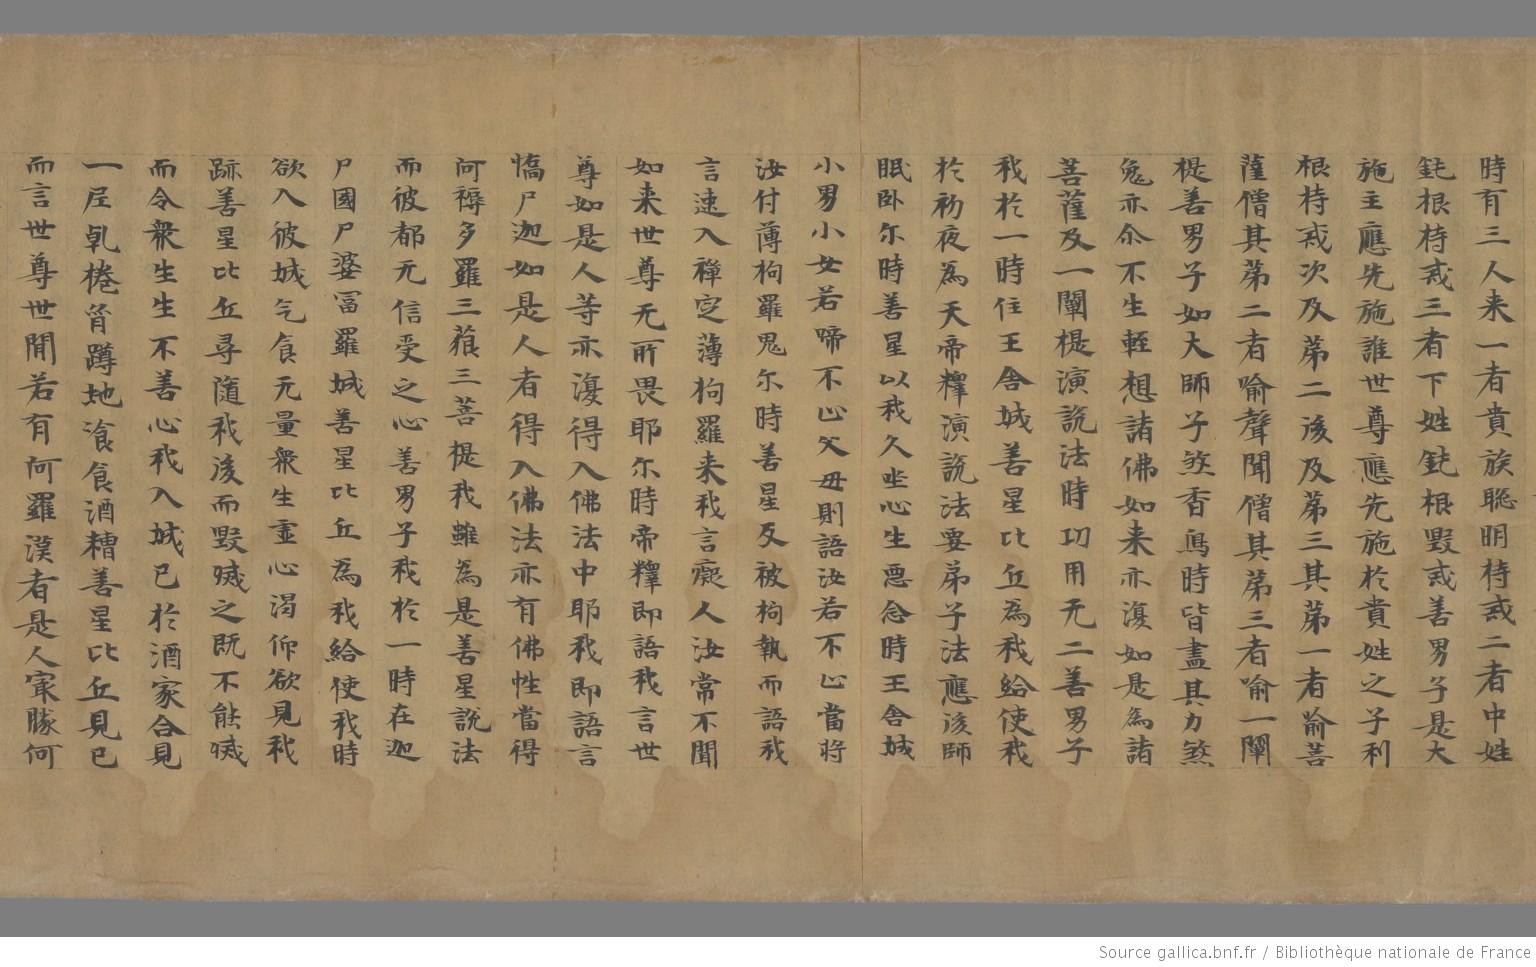 時有三人来一者貴族聡明持戒二者中姓
鈍根持戒三者下姓鈍根毀戒善男子是大
施主應先施誰世尊應先施於貴姓之子利
根持戒次及苐二後及苐三其苐一者喻菩
薩僧其苐二者喻聲聞僧其苐三者喻一闡
提善男子如大師子煞香烏時皆盡其力煞
兔亦尒不生輕想諸佛如来亦復如是為諸
菩薩及一闡提演說法時功用无二善男子
我於一時住王舍城善星比丘為我給使我
於初夜為天帝釋演說法要弟子法應後師
眠卧尔時善星以我久坐心生惡念時王舍城
小男小女若啼不止父毋則語汝若不止當將
汝付薄拘羅鬼尔時善星反被拘執而語我
言速入禪定薄拘羅来我言癡人汝常不聞
如来世尊无所畏耶尔時帝釋即語我言世
尊如是人等亦復得入佛法中耶我即語言
憍尸迦如是人者得入佛法亦有佛性當得
阿耨多羅三藐三菩提我雖為是善星說法
而彼都无信受之心善男子我於一時在迦
尸國尸婆冨羅城善星比丘為我給使我時
欲入彼城乞食无量衆生虛心渴仰欲見我
跡善星比丘尋隨我後而毀滅之既不能滅
而令衆生生不善心我入城已於酒家舍見
一尼乹棬脊蹲地飡食酒糟善星比丘見已
而言世尊世間若有阿羅漢者是人冣勝何
Source gallica.bnf.fr / Bibliothèque nationale de France